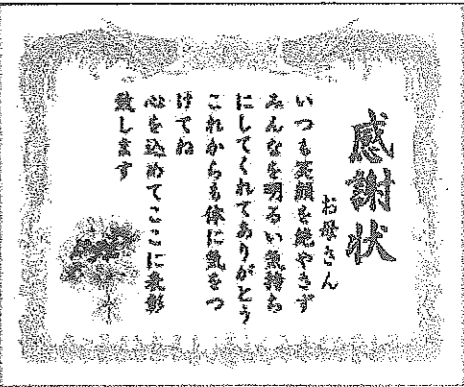 感謝状
お母さん
いつも笑顔を絶やさず
みんなを明るい気持ち
にしてくれてありがとう
これからも体に気をつ
けてね
心を込めてここに表彰
致します